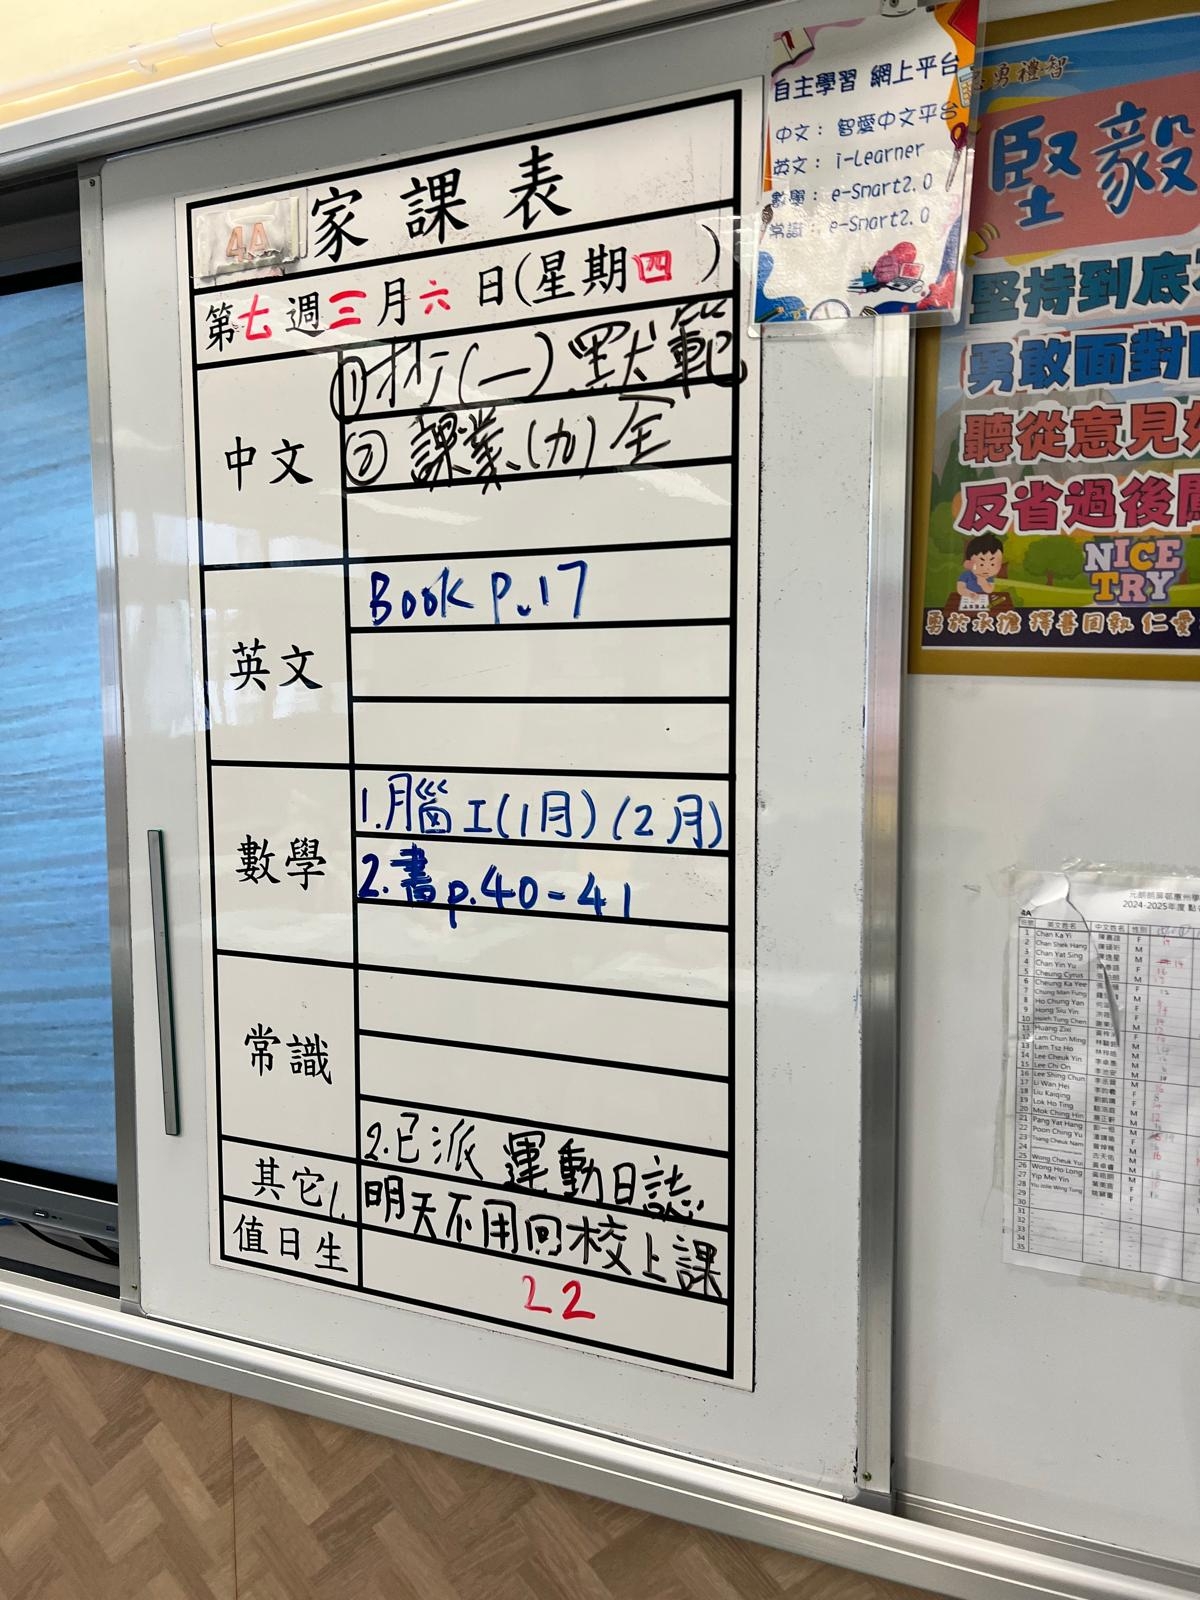 4A 家課表
第七週三月六日(星期四)
中文
① 抄(一)默範
② 課業(九)全
英文
Book P.17
數學
1.腦工(1月)(2月)
2.書p.40-41
常識
2.已派運動日誌
其它 1.明天不用回校上課
值日生
22
自主學習 網上平台
中文: 智愛中文平台
英文: i-Learner
數學: e-Smart2.0
常識: e-Smart2.0
勇禮智
堅毅
堅持到底
勇敢面對
聽從意見
反省過後
NICE
TRY
勇於承擔 擇善固執 仁愛
2024-2025年度
4A
英文姓名 中文姓名 性別
1 Chan Ka Yi F
2 Chan Shek Hang M
3 Chan Yat Sing M
4 Chan Yin Yu F
5 Cheung Cyrus M
6 Cheung Ka Yee F
7 Chung Man Fung M
8 Ho Chung Yan F
9 Hong Siu Yin F
10 Hsieh Tung Chen
11 Huang Zixi
12 Lam Chun Ming
13 Lam Tsz Ho
14 Lee Cheuk Yin
15 Lee Chi On
16 Lee Shing Chun
17 Li Wan Hei
18 Liu Kaiqing
19 Lok Ho Ting
20 Mok Ching Hin
21 Pang Yat Hang
22 Poon Ching Yu
23 Tsang Cheuk Nam
25 Wong Cheuk Yui
26 Wong Ho Long
27 Yip Mei Yin
28 Yiu Jolie Wing Tung
29
30
31
32
33
34
35